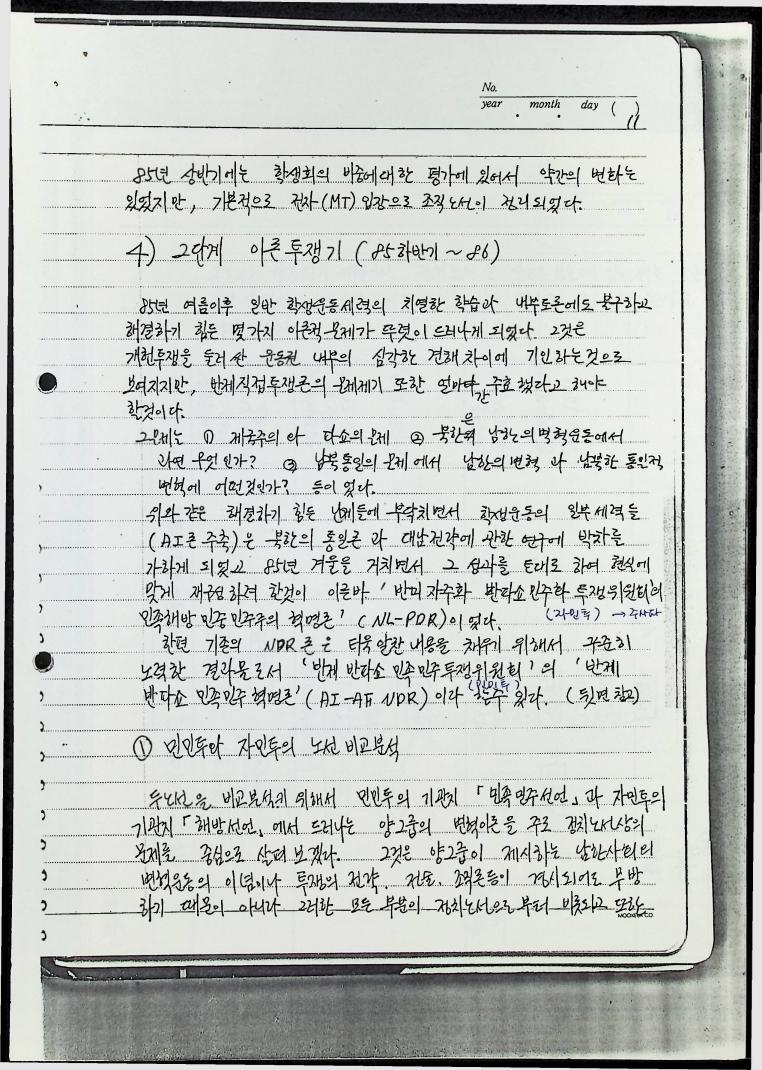 No.
year . month . day ( )
11
85년 상반기에는 학생회의 비중에대한 평가에 있어서 약간의 변화는
있었지만, 기본적으로 전자(MT) 입장으로 조직노선이 정리되었다.
4) 2단계 이론투쟁기 (85하반기 ~ 86)
85년 여름이후 일반 학생운동세력의 치열한 학습과 내부토론에도 불구하고
해결하기 힘든 몇가지 이론적 문제가 뚜렷이 드러나게 되었다. 그것은
개헌투쟁을 둘러싼 운동권 내부의 심각한 견해차이에 기인하는것으로
보여지지만, 반제직접투쟁론의 문제제기 또한 얼마간 주효했다고 해야
할것이다.
그문제는 ① 제국주의와 파쇼의문제 ② 북한은 남한의변혁운동에서
과연 무엇인가? ③ 남북통일의 문제에서 남한의변혁과 남북한 통일적
변혁에 어떤것인가? 등이었다.
위와같은 해결하기 힘든 난제들에 부닥치면서 학생운동의 일부세력들
(AI론 주축)은 북한의 통일론과 대남전략에 관한 연구에 박차를
가하게 되었고 85년 겨울을 거치면서 그 성과를 토대로 하여 현실에
맞게 재구성하려 한것이 이른바 '반미자주화 반파쇼민주화 투쟁위원회'의
민족해방 민중민주주의 혁명론' (NL-PDR)이었다. (자민투) → 주사파
한편 기존의 NDR론은 더욱알찬 내용을 채우기 위해서 꾸준히
노력한 결과물로서 '반제 반파쇼 민족민주투쟁위원회'의 '반제
반파쇼 민족민주혁명론' (AI-AF NDR)이라 할수 있다. (뒷면 참고)
(민민투)
① 민민투와 자민투의 노선 비교분석
두노선을 비교분석키 위해서 민민투의 기관지 「민족민주선언」과 자민투의
기관지 「해방선언」에서 드러나는 양그룹의 변혁이론을 주로 정치노선상의
문제를 중심으로 살펴 보겠다. 그것은 양그룹이 제시하는 남한사회의
변혁운동의 이념이나 투쟁의 전략, 전술, 조직론등이 경시되어도 무방
하기 때문이 아니라 그러한 모든 부분이 정치노선으로부터 비롯되고 또한
MOOKAKCO